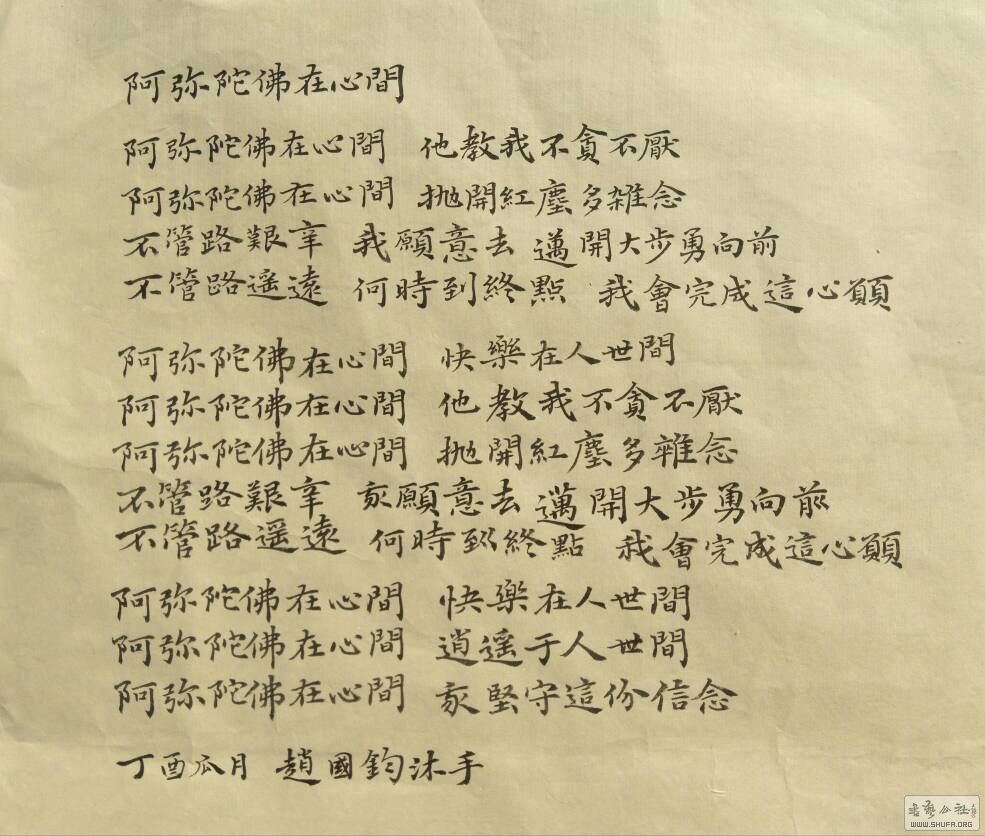 阿弥陀佛在心間
阿弥陀佛在心間 他教我不貪不厭
阿弥陀佛在心間 拋開紅塵多雜念
不管路艱辛 我願意去 邁開大步勇向前
不管路遥遠 何時到終點 我會完成這心願
阿弥陀佛在心間 快樂在人世間
阿弥陀佛在心間 他教我不貪不厭
阿弥陀佛在心間 拋開紅塵多雜念
不管路艱辛 我願意去 邁開大步勇向前
不管路遥遠 何時到終點 我會完成這心願
阿弥陀佛在心間 快樂在人世間
阿弥陀佛在心間 逍遥于人世間
阿弥陀佛在心間 我堅守這份信念
丁酉瓜月 趙國鈞沐手
书艺公社
WWW.SHUFA.ORG